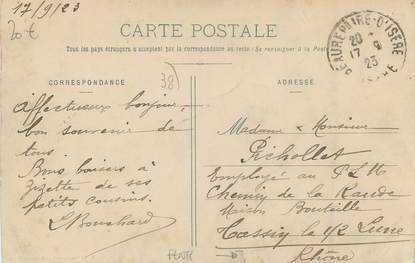 17/9/23
20 €
CARTE POSTALE
Tous les pays étrangers n'acceptent pas la correspondance au recto (Se renseigner à la Poste
CORRESPONDANCE
38
ADRESSE
BEAUREPAIRE-D'ISÈRE
20
17 9
23
ISÈRE
Affectueux bonjour,
bon souvenir de
tous.
Bons baisers à
Zizette de ses
petits cousins.
L Bouchard
Madame & Monsieur
Pichollet
Employé au P.L.M
Chemin de la Raude
Maison Bouteille
Tassin la 1/2 Lune
Rhône